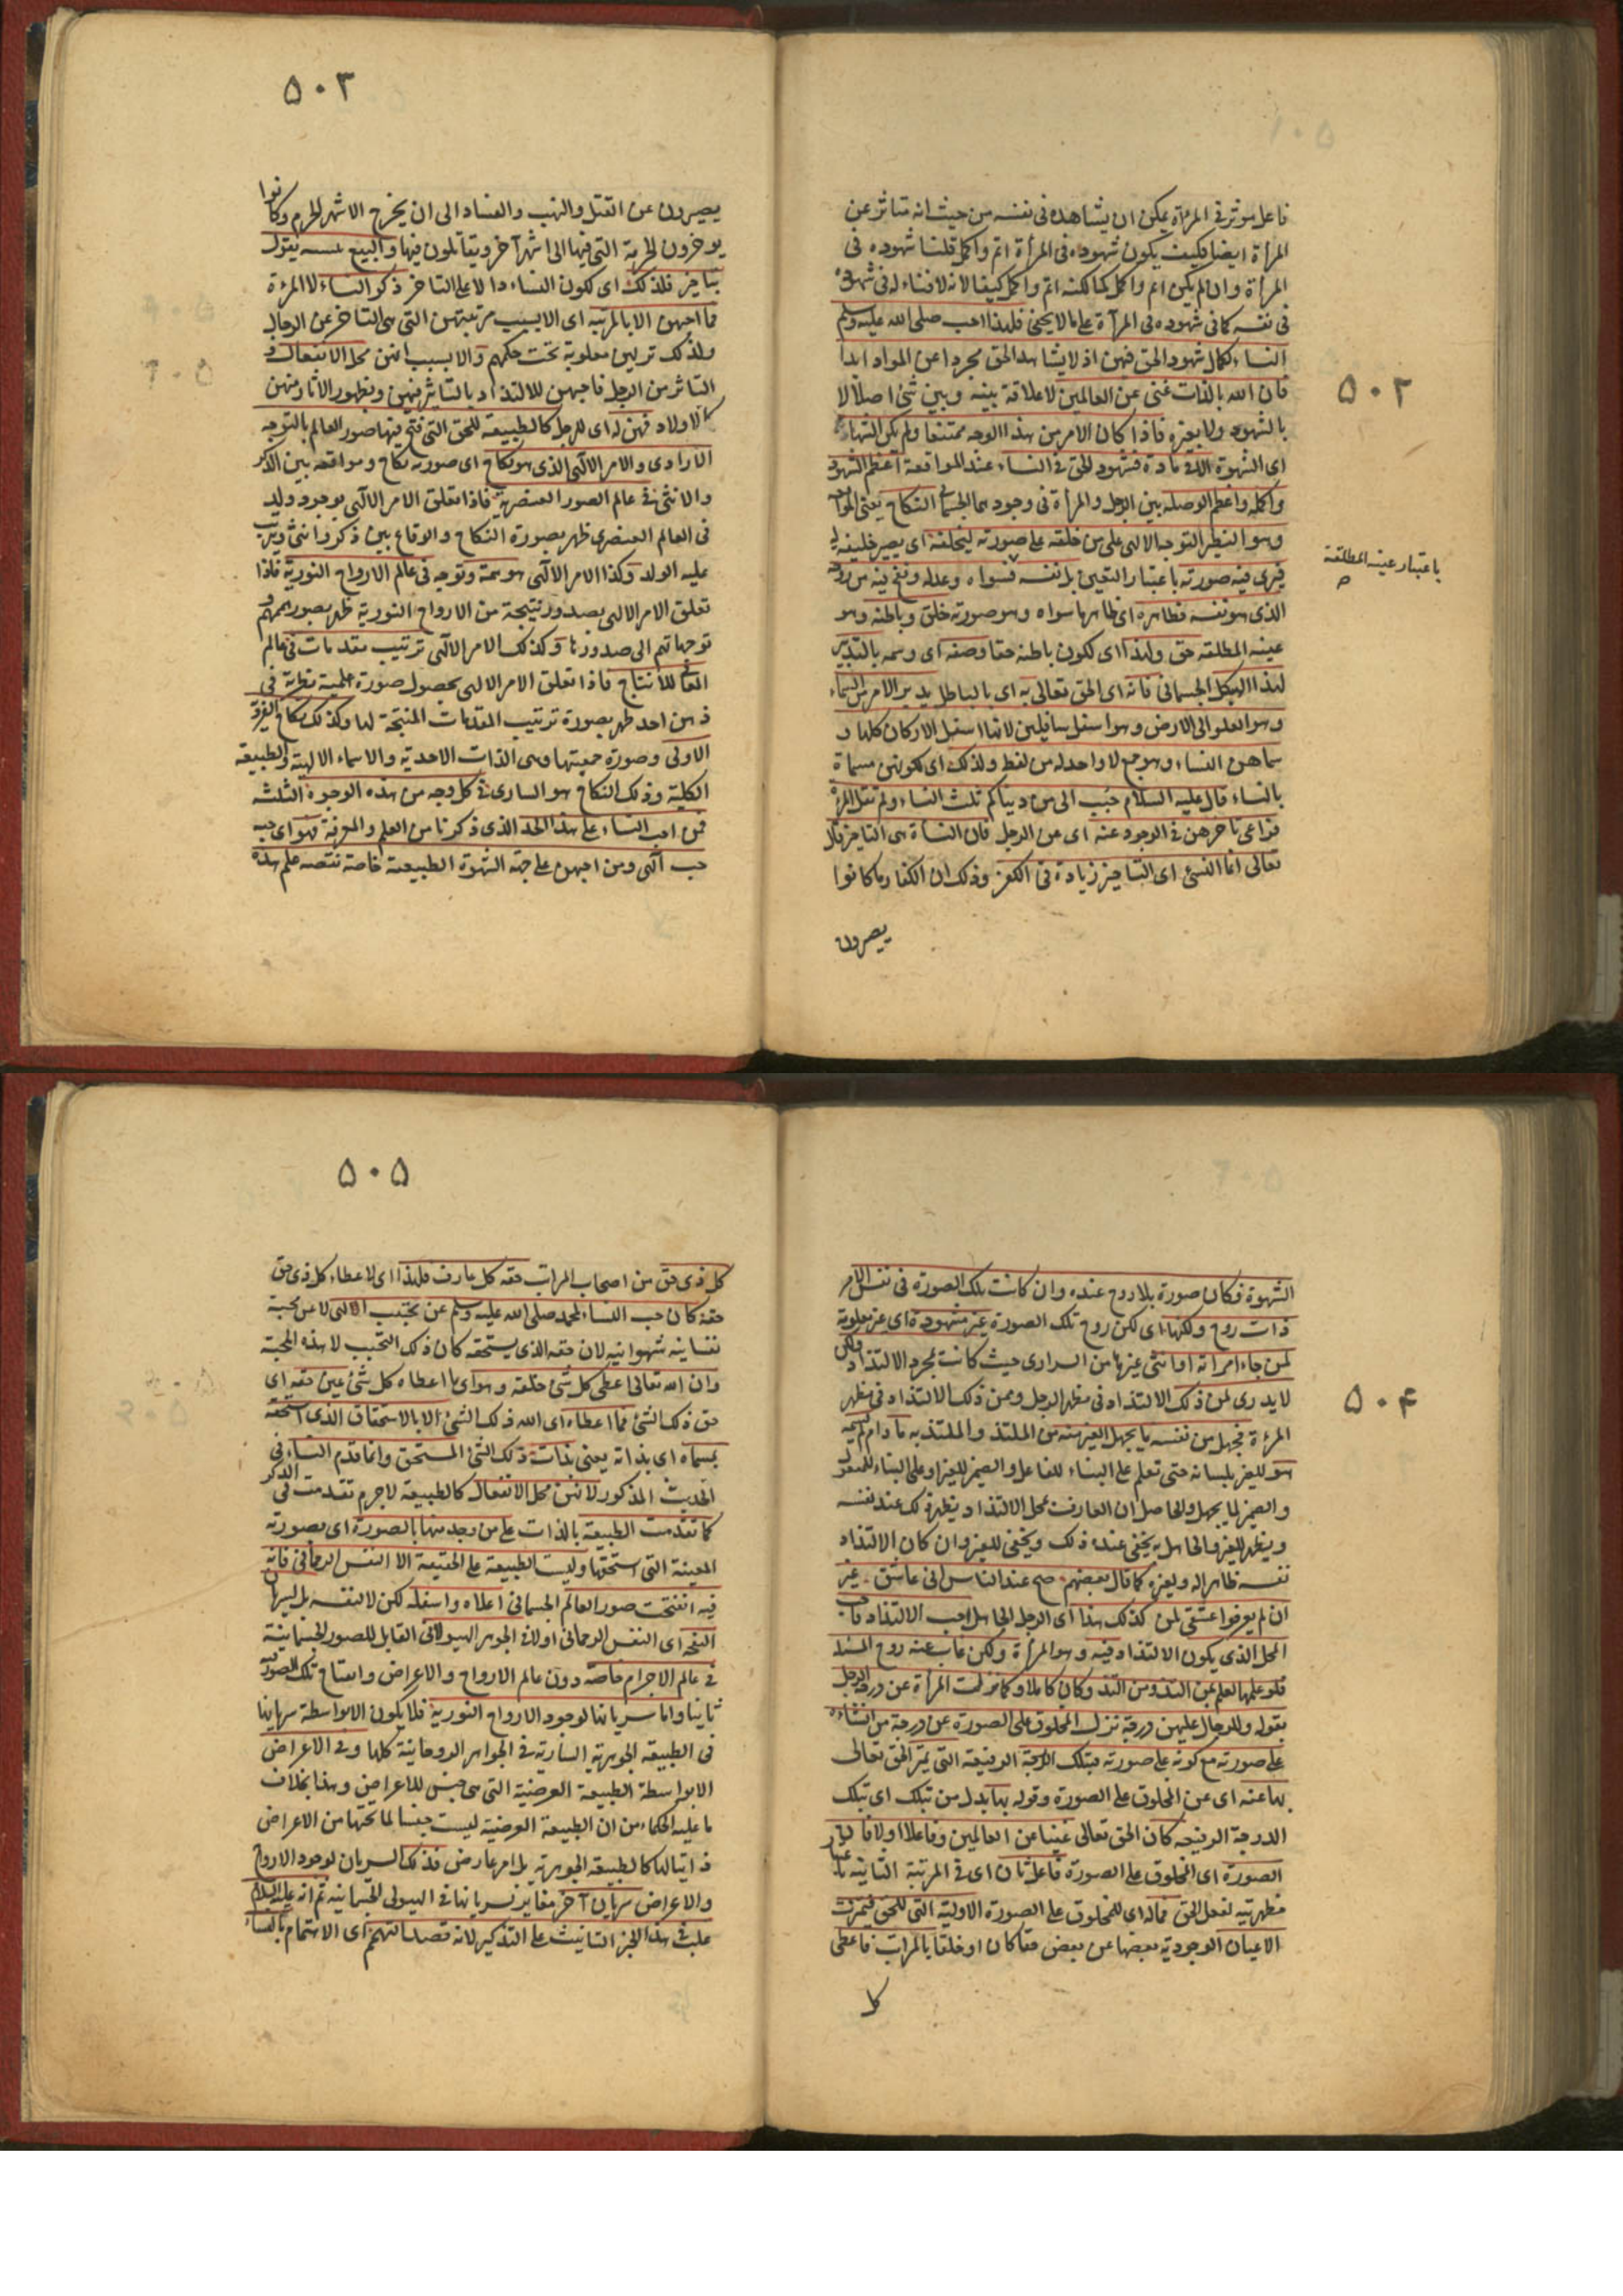 ۵۰۲
فاعل موثر في المرأة يمكن ان يشاهده في نفسه من حيث انه متاثر عن
المرأة ايضا فكيف يكون شهوده في المرأة اتم واكمل قلنا شهوده في
المرأة وان لم يكن اتم واكمل كما لكنه اتم واكمل كيفا لانه لا فناء له في شهوده
في نفسه كما في شهوده في المرأة على ما لا يخفى فلهذا احب صلى الله عليه وسلم
النساء لكمال شهود الحق فيهن اذ لا يشاهد الحق مجردا عن المواد ابدا
فان الله بالذات غني عن العالمين لا علاقة بينه وبين شئ اصلا لا
بالشهود ولا بغيره فاذا كان الامر من هذا الوجه ممتنعا ولم يكن الشهادة
اي الشهود الا في مادة فشهود الحق في النساء عند المواقعة اعظم الشهود
واكمله واعظم الوصلة بين الرجل والمرأة في وجودهما الجسماني النكاح يعني المواقعة
وهو النظير التوجه الالهي على من خلقه على صورته ليخلفه اي يصير خليفة له
فيرى فيه صورته باعتبار التعين بل نفسه فسواه وعدله ونفخ فيه من روحه
باعتبار عينه المطلقة
الذي هو نفسه فظاهره اي ظاهر ما سواه وهو صورته خلق وباطنه وهو
عينه المطلقة حق ولهذا اي لكون باطنه حقا وصفه اي وسمه بالتدبير
لهذا الهيكل الجسماني فانه اي الحق تعالى به اي بالباطل يدبر الامر من السماء
وهو العلو الى الارض وهو اسفل سافلين لانها اسفل الاركان كلها و
سماهن النساء وهو جمع لا واحد له من لفظه ولذلك اي لكونهن مسماة
بالنساء قال عليه السلام حبب الي من دنياكم ثلث النساء ولم يقل المرأة
فراعى تاخرهن في الوجود عنه اي عن الرجل فان النسأة هي التاخير قال
تعالى انما النسئ اي التاخير زيادة في الكفر وذلك ان الكفار ما كانوا
يصبرون
۵۰۳
يصبرون عن القتل والنهب والفساد الى ان يخرج الاشهر الحرم وكانوا
يوخرون الحرمة التي فيها الى اشهر آخر ويقاتلون فيها والبيع نسيه يقول
بتاخير فلذلك اي لكون النساء دالا على التاخر ذكر النساء لا المرءة
فما احبهن الا بالمرتبة اي الا بسبب مرتبتهن التي هي التاخر عن الرجال
ولذلك ترىهن مغلوبة تحت حكمهم والا بسبب انهن محل الانفعال و
التاثر من الرجل فاحبهن للالتذاذ بالتاثير فيهن وبظهور الآثار منهن
كالاولاد فهن له اي للرجل كالطبيعة للحق التي فتح فيها صور العالم بالتوجه
الارادي والامر الالهي الذي هو نكاح اي صورته نكاح ومواقعة بين الذكر
والانثى في عالم الصور العنصرية فاذا تعلق الامر الالهي بوجود ولد
في العالم العنصري ظهر بصورة النكاح والوقاع بين ذكر وانثى ويترتب
عليه الولد وكذا الامر الالهي هو همة وتوجه في عالم الارواح النورية فاذا
تعلق الامر الالهي بصدور نتيجة من الارواح النورية ظهر بصور هممهم و
توجهاتهم الى صدورها وكذلك الامر الالهي ترتيب مقدمات في عالم
المعاني للانتاج فاذا تعلق الامر الالهي بحصول صورة علمية نظرية في
ذهن احد ظهر بصورة ترتيب المقدمات المنتجة لها وكل ذلك نكاح الفردية
الاولى وصورة جمعيتها وهي الذات الاحدية والاسماء الالهية والطبيعة
الكلية وذلك النكاح هو الساري في كل وجه من هذه الوجوه الثلثة
فمن احب النساء على هذا الحد الذي ذكرنا من العلم والمعرفة فهو اي حبه
حب الهي ومن احبهن على جهة الشهوة الطبيعية خاصة نقصه علم هذه
۵۰۴
الشهوة فكان صورة بلا روح عنده وان كانت تلك الصورة في نفس الامر
ذات روح ولكنها اي لكن روح تلك الصورة غير مشهودة اي غير معلومة
لمن جاء امراته او انثى غيرها من السراري حيث كانت لمجرد الالتذاذ ولكن
لا يدرى لمن ذلك الالتذاذ في مظهر الرجل وممن ذلك الالتذاذ في مظهر
المرءة فجهل من نفسه ما يجهل الغير منه من الملتذ والملتذ به ما دام لم يسمه
هو للغير بلسانه حتى تعلم على البناء للفاعل والضمير للغير او على البناء للمفعول
والضمير لما يجهل والحاصل ان العارف محل الالتذاذ يظهر ذلك عند نفسه
ويظهر للغير والجاهل به يخفى عنده ذلك ويخفى للغير وان كان الالتذاذ
نفسه ظاهرا له ولغيره كما قال بعضهم صح عند الناس اني عاشق غير
ان لم يعرفوا عشقي لمن كذلك هذا اي الرجل الجاهل احب الالتذاذ فاحب
المحل الذي يكون الالتذاذ فيه وهو المرأة ولكن غاب عنه روح المسئلة
فلو علمها لعلم بمن التذ ومن التذ وكان كاملا وكما نزلت المرأة عن درجة الرجل
بقوله وللرجال عليهن درجة نزل المخلوق على الصورة عن درجة من انشاءه
على صورته مع كونه على صورته فبتلك الدرجة الرفيعة التي تميز الحق تعالى
بها عنه اي عن المخلوق على الصورة وقوله بها بدل من بتلك اي بتلك
الدرجة الرفيعة كان الحق تعالى غنيا عن العالمين وفاعلا اولا فان
الصورة اي المخلوق على الصورة فاعل ثان اي في المرتبة الثانية
مظهريته لفعل الحق فماله اي للمخلوق على الصورة الاولية التي للحق فتميزت
الاعيان الوجودية بعضها عن بعض حقا كان او خلقا بالمراتب فاعطى
كل
۵۰۵
كل ذي حق من اصحاب المراتب حقه كل عارف فلهذا اي لاعطاء كل ذي حق
حقه كان حب النساء لمحمد صلى الله عليه وسلم عن تحبب الالهي لا عن محبة
نفسانية شهوانية لان حقه الذي يستحقه كان ذلك التحبب لا هذه المحبة
وان الله تعالى اعطى كل شئ خلقه وهو اي ما اعطاه كل شئ عين حقه اي
حق ذلك الشئ فما اعطاه اي الله ذلك الشئ الا بالاستحقاق الذي استحقه
بمسماه اي بذاته يعني بذات ذلك الشئ المستحق وانما قدم النساء في
الحديث المذكور لانهن محل الانفعال كالطبيعة لا جرم تقدمت في الذكر
كما تقدمت الطبيعة بالذات على من وجد منها بالصورة اي بصورته
المعينة التي استحقها وليست الطبيعة على الحقيقة الا النفس الرحماني فانه
فيه انفتحت صور العالم الجسماني اعلاه واسفله لكن لا لنفسه بل لسريان
النفخة اي النفس الرحماني اولا في الجوهر الهيولاني القابل للصور الجسمانية
في عالم الاجرام خاصة دون عالم الارواح والاعراض وانفتاح تلك الصور فيه
ثانيا واما سريانها لوجود الارواح النورية فلا يكون الا بواسطة سريانها
في الطبيعة الجوهرية السارية في الجواهر الروحانية كلها وفي الاعراض
الا بواسطة الطبيعة العرضية التي هي جنس للاعراض وهذا بخلاف
ما عليه الحكماء من ان الطبيعة العرضية ليست جنسا لما تحتها من الاعراض
ذاتيا لها كالطبيعة الجوهرية بل امر عارض فذلك السريان لوجود الارواح
والاعراض سريان آخر مغاير لسريانها في الهيولى الجسمانية ثم انه عليه السلام
غلب في هذا الخبر التانيث على التذكير لانه قصد التهمم اي الاهتمام بالنساء